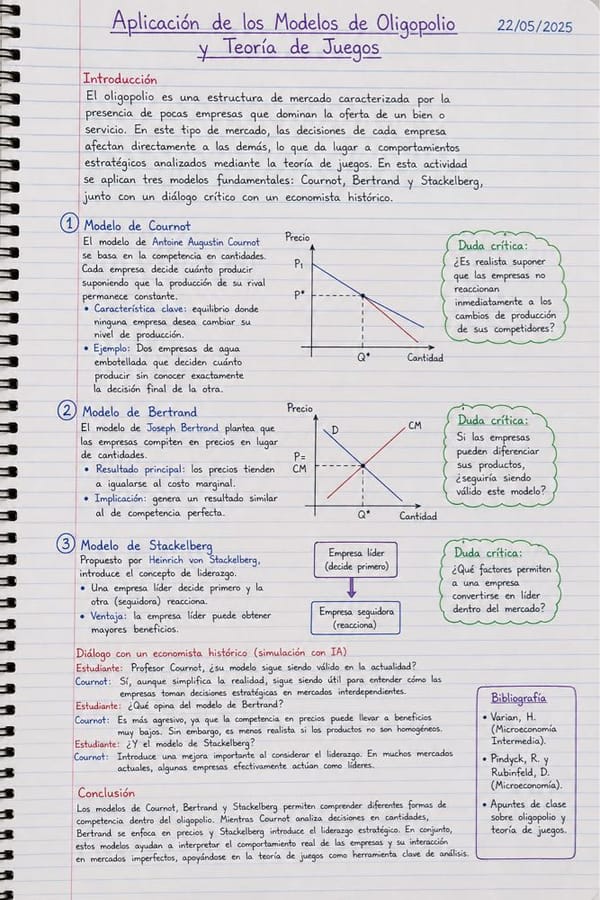 Aplicación de los Modelos de Oligopolio
y Teoría de Juegos
22/05/2025
Introducción
El oligopolio es una estructura de mercado caracterizada por la
presencia de pocas empresas que dominan la oferta de un bien o
servicio. En este tipo de mercado, las decisiones de cada empresa
afectan directamente a las demás, lo que da lugar a comportamientos
estratégicos analizados mediante la teoría de juegos. En esta actividad
se aplican tres modelos fundamentales: Cournot, Bertrand y Stackelberg,
junto con un diálogo crítico con un economista histórico.
1 Modelo de Cournot
El modelo de Antoine Augustin Cournot
se basa en la competencia en cantidades.
Cada empresa decide cuánto producir
suponiendo que la producción de su rival
permanece constante.
• Característica clave: equilibrio donde
ninguna empresa desea cambiar su
nivel de producción.
• Ejemplo: Dos empresas de agua
embotellada que deciden cuánto
producir sin conocer exactamente
la decisión final de la otra.
Precio
P₁
P*
Q*
Cantidad
Duda crítica:
¿Es realista suponer
que las empresas no
reaccionan
inmediatamente a los
cambios de producción
de sus competidores?
2 Modelo de Bertrand
El modelo de Joseph Bertrand plantea que
las empresas compiten en precios en lugar
de cantidades.
• Resultado principal: los precios tienden
a igualarse al costo marginal.
• Implicación: genera un resultado similar
al de competencia perfecta.
Precio
D
CM
P=
CM
Q*
Cantidad
Duda crítica:
Si las empresas
pueden diferenciar
sus productos,
¿seguiría siendo
válido este modelo?
3 Modelo de Stackelberg
Propuesto por Heinrich von Stackelberg,
introduce el concepto de liderazgo.
• Una empresa líder decide primero y la
otra (seguidora) reacciona.
• Ventaja: la empresa líder puede obtener
mayores beneficios.
Empresa líder
(decide primero)
Empresa seguidora
(reacciona)
Duda crítica:
¿Qué factores permiten
a una empresa
convertirse en líder
dentro del mercado?
Diálogo con un economista histórico (simulación con IA)
Estudiante: Profesor Cournot, ¿su modelo sigue siendo válido en la actualidad?
Cournot: Sí, aunque simplifica la realidad, sigue siendo útil para entender cómo las
empresas toman decisiones estratégicas en mercados interdependientes.
Estudiante: ¿Qué opina del modelo de Bertrand?
Cournot: Es más agresivo, ya que la competencia en precios puede llevar a beneficios
muy bajos. Sin embargo, es menos realista si los productos no son homogéneos.
Estudiante: ¿Y el modelo de Stackelberg?
Cournot: Introduce una mejora importante al considerar el liderazgo. En muchos mercados
actuales, algunas empresas efectivamente actúan como líderes.
Conclusión
Los modelos de Cournot, Bertrand y Stackelberg permiten comprender diferentes formas de
competencia dentro del oligopolio. Mientras Cournot analiza decisiones en cantidades,
Bertrand se enfoca en precios y Stackelberg introduce el liderazgo estratégico. En conjunto,
estos modelos ayudan a interpretar el comportamiento real de las empresas y su interacción
en mercados imperfectos, apoyándose en la teoría de juegos como herramienta clave de análisis.
Bibliografía
• Varian, H.
(Microeconomía
Intermedia).
• Pindyck, R. y
Rubinfeld, D.
(Microeconomía).
• Apuntes de clase
sobre oligopolio y
teoría de juegos.